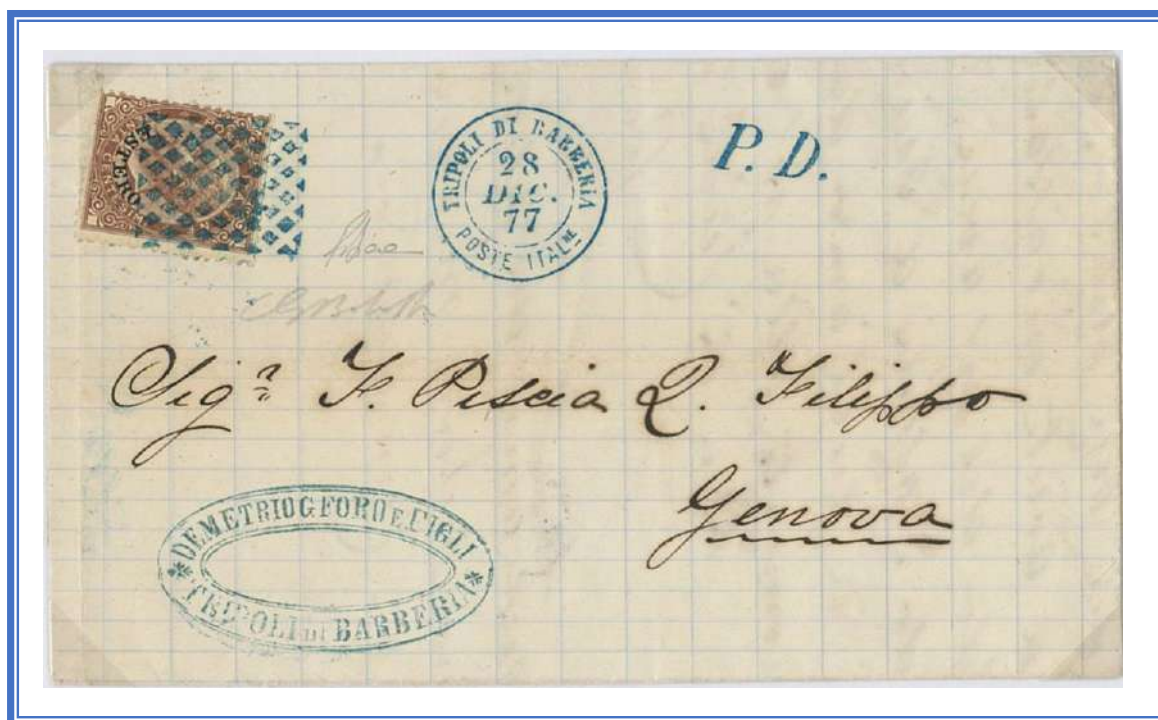 ESTERO
TRIPOLI DI BARBERIA
28
DIC.
77
POSTE ITALNE
P. D.
Sigr F. Piscia Q. Filippo
Genova
DEMETRIO G FORO E FIGLI
TRIPOLI DI BARBERIA